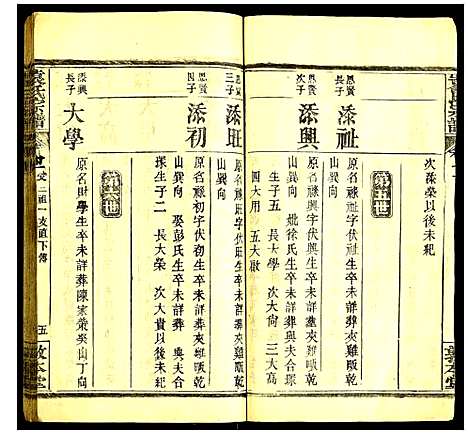 次添榮以後未紀
第十五世
恩賢長子
添祉
原名祿祉字伏祉生卒未詳葬夾灘乾山巽向
恩賢次子
添興
原名祿興字伏興生卒未詳葬夾灘乾山巽向 妣徐氏生卒未詳葬與夫合塚
生子五 長大學 次大榮 三大高
四大用 五大啟
恩賢三子
添旺
原名祿旺字伏旺生卒未詳葬夾灘乾山巽向
恩賢四子
添初
原名祿初字伏初生卒未詳葬夾灘乾山巽向 娶彭氏生卒未詳葬與夫合塚生子二 長大榮 次大貴以後未紀
第十六世
添興長子
大學
原名世學生卒未詳葬陳家叢癸山丁向
袁氏宗譜
二祖一支直下傳
五
敦本堂